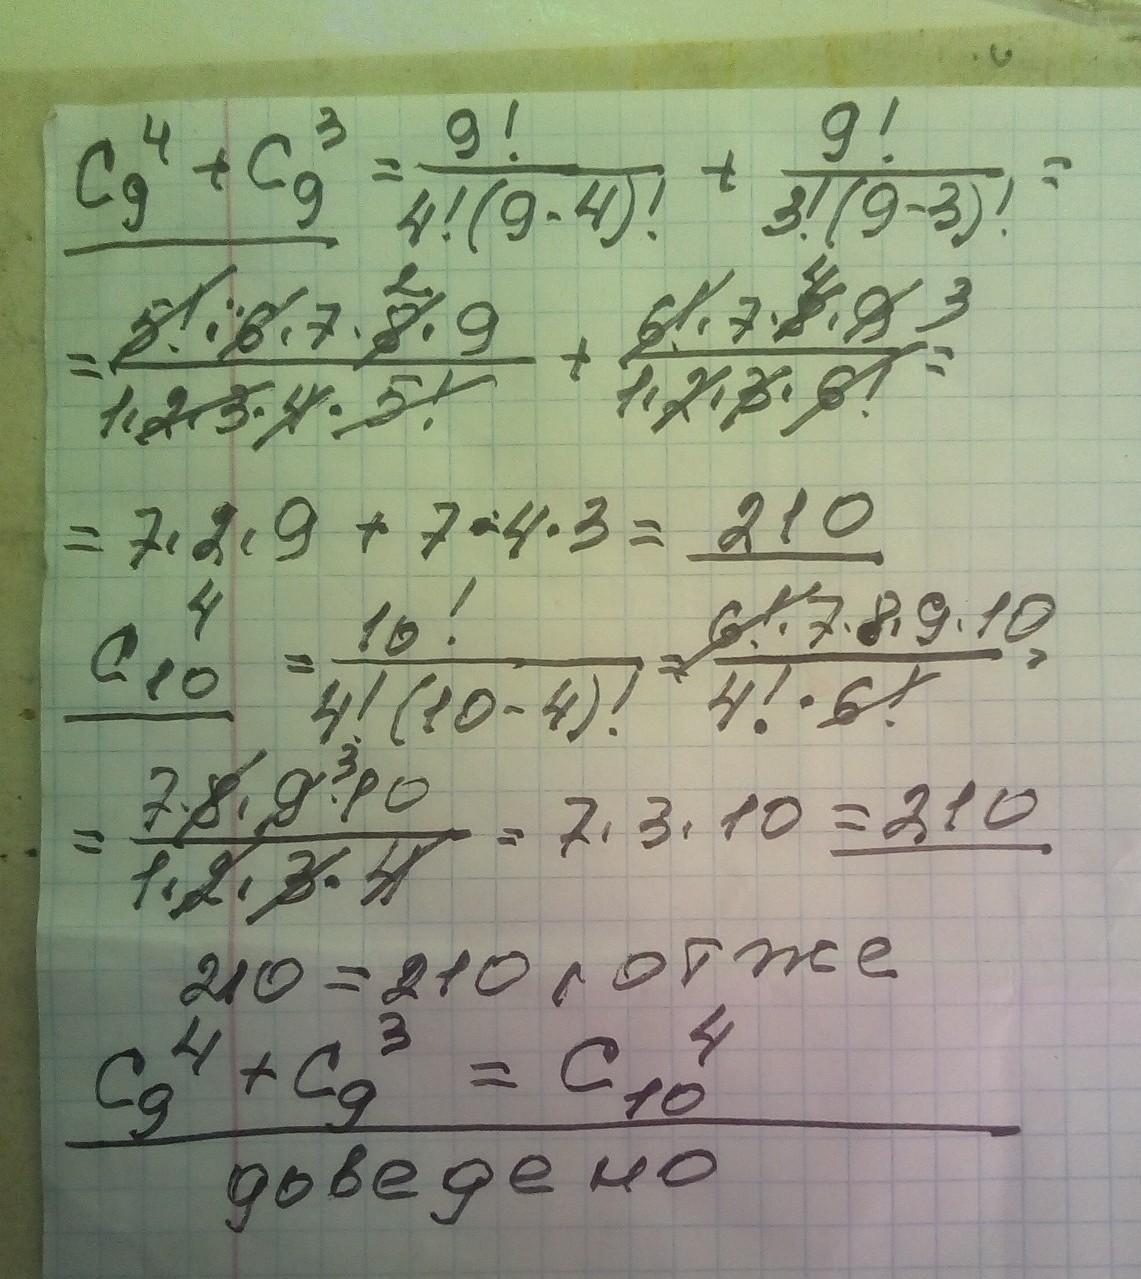 C₉⁴ + C₉³ = 9! / 4!(9-4)! + 9! / 3!(9-3)! =
= 5!·6·7·8·9 / 1·2·3·4·5! + 6!·7·8·9 / 1·2·3·6! =
= 7·2·9 + 7·4·3 = 210
C₁₀⁴ = 10! / 4!(10-4)! = 6!·7·8·9·10 / 4!·6! =
= 7·8·9·10 / 1·2·3·4 = 7·3·10 = 210
210 = 210, отже
C₉⁴ + C₉³ = C₁₀⁴
доведено